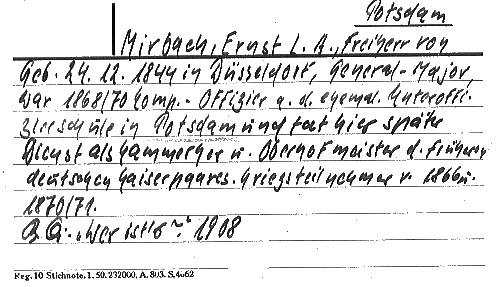 Potsdam
Mirbach, Ernst L. A., Freiherr von
Geb. 24. 12. 1844 in Düsseldorf, General-Major,
War 1868/70 Komp.-Offizier a. d. ehemal. Unteroffi-
zierschule in Potsdam und tat hier später
Dienst als Kammerherr u. Oberhofmeister d. früheren
deutschen Kaiserpaares. Kriegsteilnehmer v. 1866 u.
1870/71.
B Q: „Wer ist's?" 1908
Reg. 10 Stichnote. 1. 50. 232000. A. 803. S. 4062